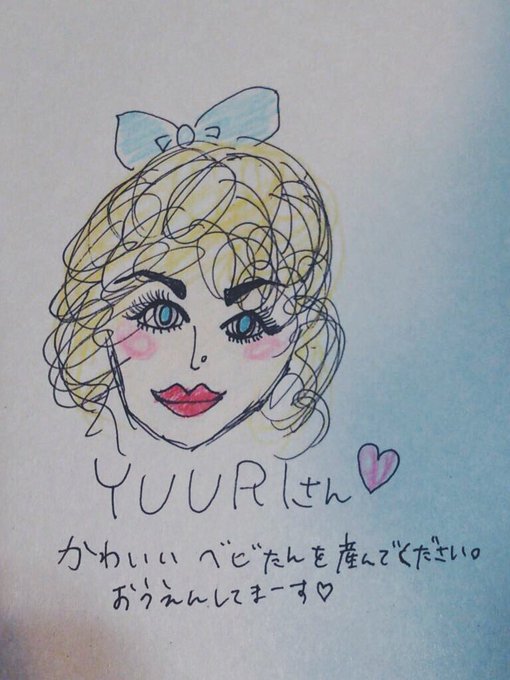 YUURIさん♡
かわいい ベビたんを産んでください。
おうえんしてまーす♡